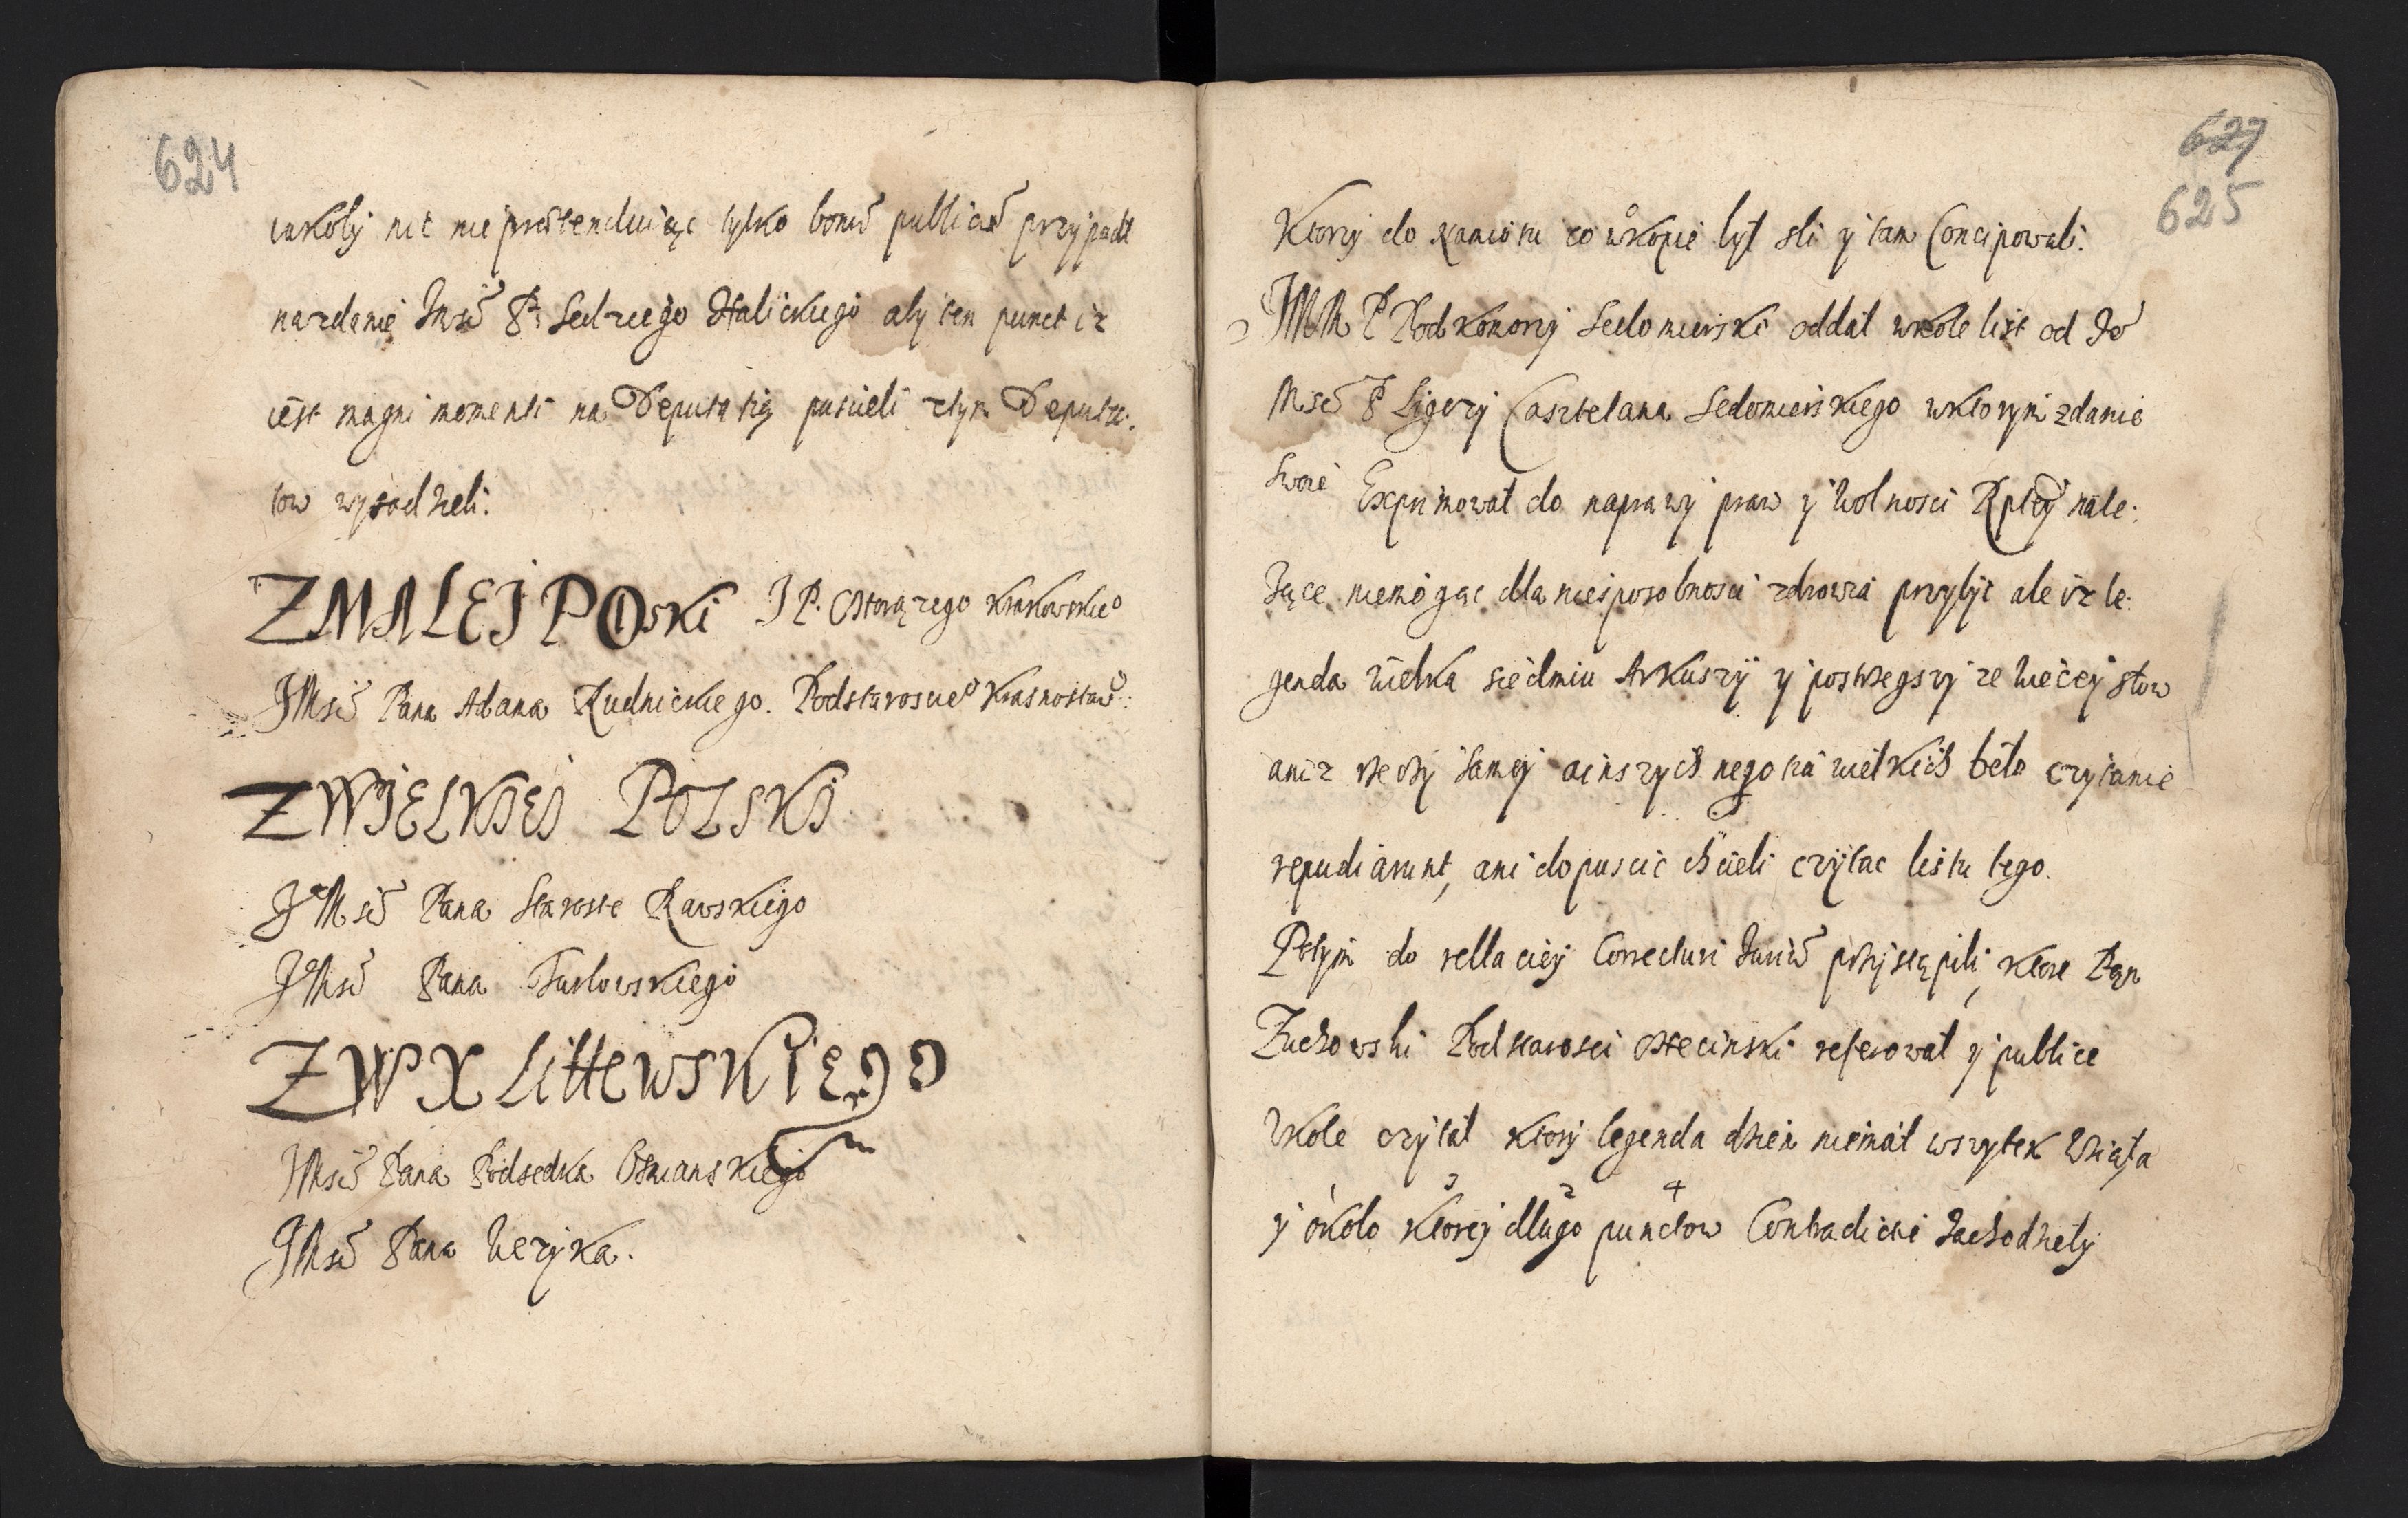 624
iakoby nic nie praetenduiąc tylko bonu publicu przypadł
na zdanie Jmsci P. Sedziego Halickiego aby ten punct iz
iest magni momenti na Deputatią puscieli z tym Deputa:
tow wysadzieli.
Z MALEJ POLski J P. Chorązego Krakowskieo
JMsci Pana Adama Rudnickiego. Podstaroscieo Krasnostaw:
Z WIELKIEJ POLSKI
JeMsci Pana Staroste Rawskiego
JeMsci Pana Turlowskiego
Z W X LittewsKiEgo
JMsci Pana Podsedka Osmianskiego
JMsci Pana
627
625
Ktorzy do namiotu co w kopie był sli y tam Concipowali.
JMM P Podkomorzy Sedomierski oddał w kole list od Jeo
Msci P Ligezy Casztelana Sedomierskiego w ktorym zdanie
swoie Exprimował do naprawy praw y wolnosci Rptey nale:
żące niemogąc dla niesposobnosci zdrowia przybyć ale iz le:
genda wielka siedmiu Arkuszy y postrzegszy ze wiecey słow
aniz rzeczy samey a inszych negotia wielkich beło czytanie
repudiarunt, ani dopuscic chcieli czytac listu tego.
Potym do rellaciey Correcturi Juriu przystąpili, ktore Pan
Zuchowski Podstarosci Stecinski referował y publice
w kole czytał ktory legenda dzien niemal wszytek wzięła
3 2 4
y około ktorey długo punctow Contradictie zachodzieły